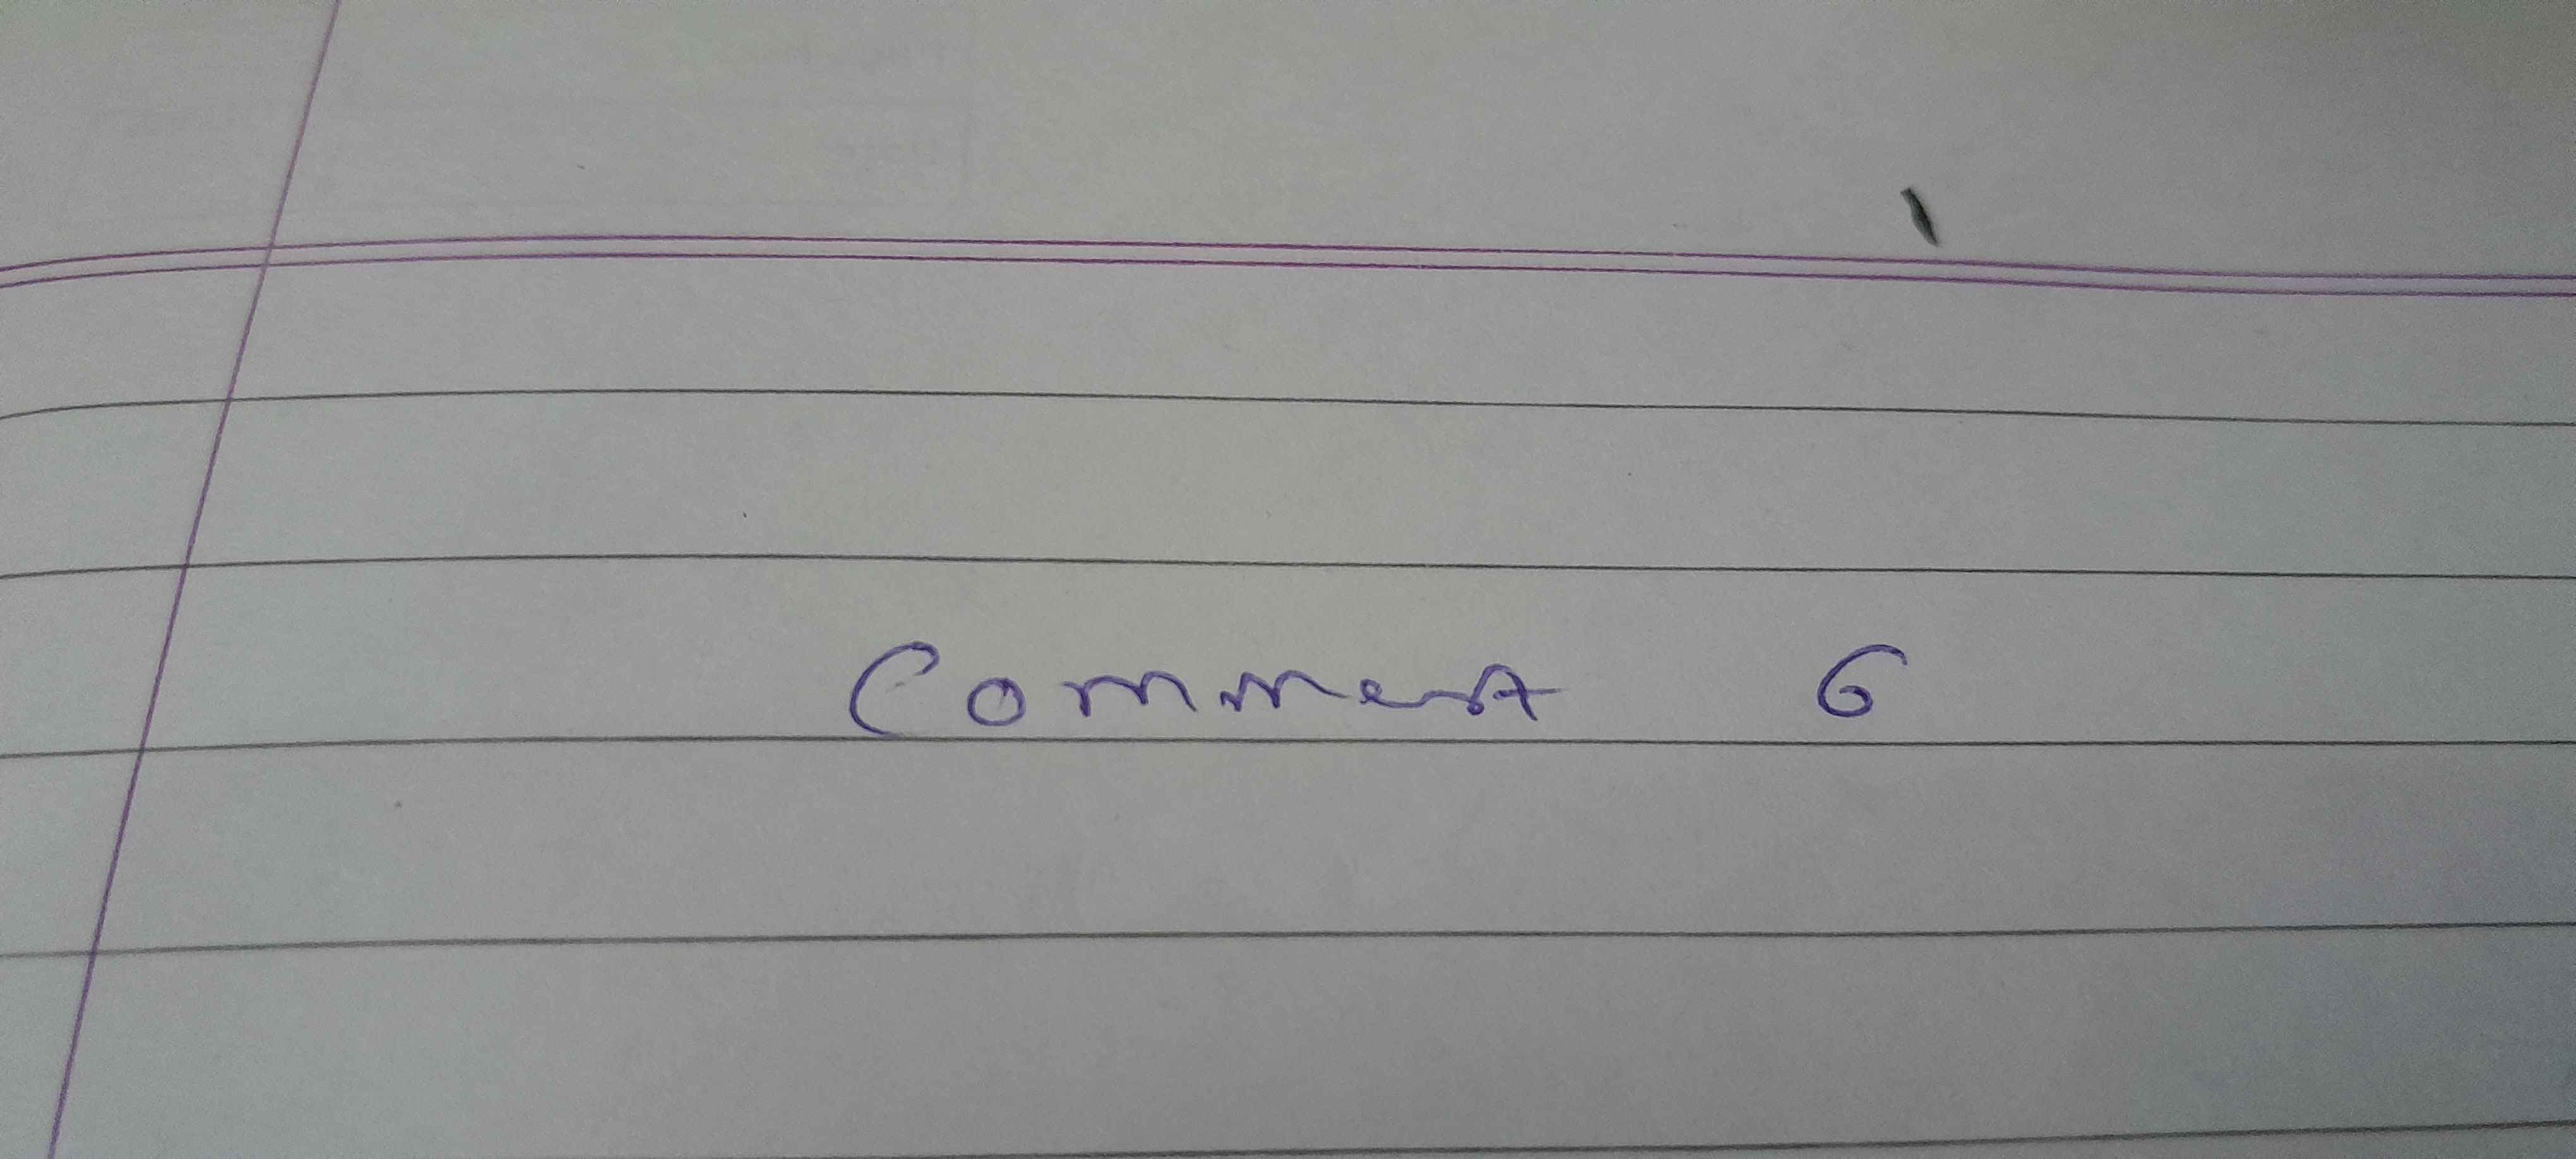 Comment 6